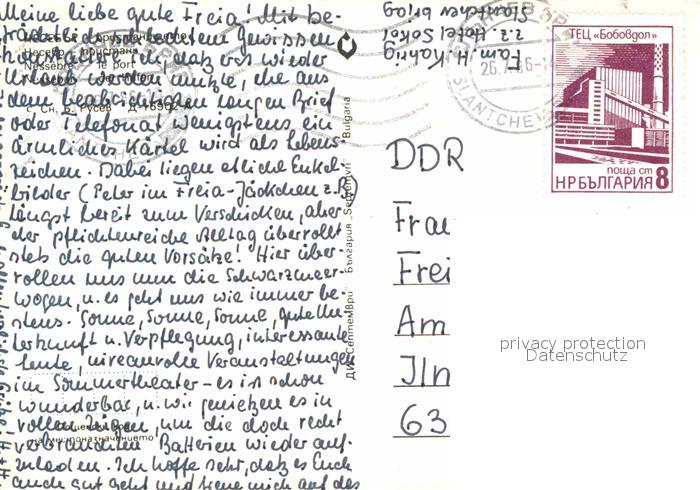 Meine liebe gute Freia! Mit be-
trächtlich schlechtem Gewissen
hat, daß es erst wieder
Urlaub werden mußte, ehe aus
dem beabsichtigten langen Brief
oder Telefonat wenigstens ein
ärmliches Kärtel wird als Lebens-
zeichen. Dabei liegen etliche Enkel-
bilder (Peter im Freia-Jäckchen z.B.)
längst bereit zum Verschicken, aber
der pflichtenreiche Alltag überrollt
stets die guten Vorsätze! Hier über-
rollen uns nun die Schwarzmeer-
wogen, u. es geht uns wie immer be-
stens. Sonne, Sonne, Sonne, gute Un-
terkunft u. Verpflegung, interessante
Leute, niveauvolle Veranstaltungen
im Sommertheater – es ist schon
wunderbar, u. wir genießen es in
vollen Zügen, um die doch recht
verbrauchten Batterien wieder auf-
zuladen. Ich hoffe sehr, daß es Euch
auch gut geht und freue mich auf das
Несебър
Nessebre
le port
© Сн. Б. Русев Д-16592-А
местоназначението
ДИ „Септември“ България "Septemvri" Bulgaria
Fam. H. Kahrig
z.Z. Hotel Sokol
Slantschev brjag
26.
SLANTCHEV
ТЕЦ „Бобовдол“
поща ст
НР БЪЛГАРИЯ 8
DDR
Frau
Frei
Am
Ilm
63
privacy protection
Datenschutz